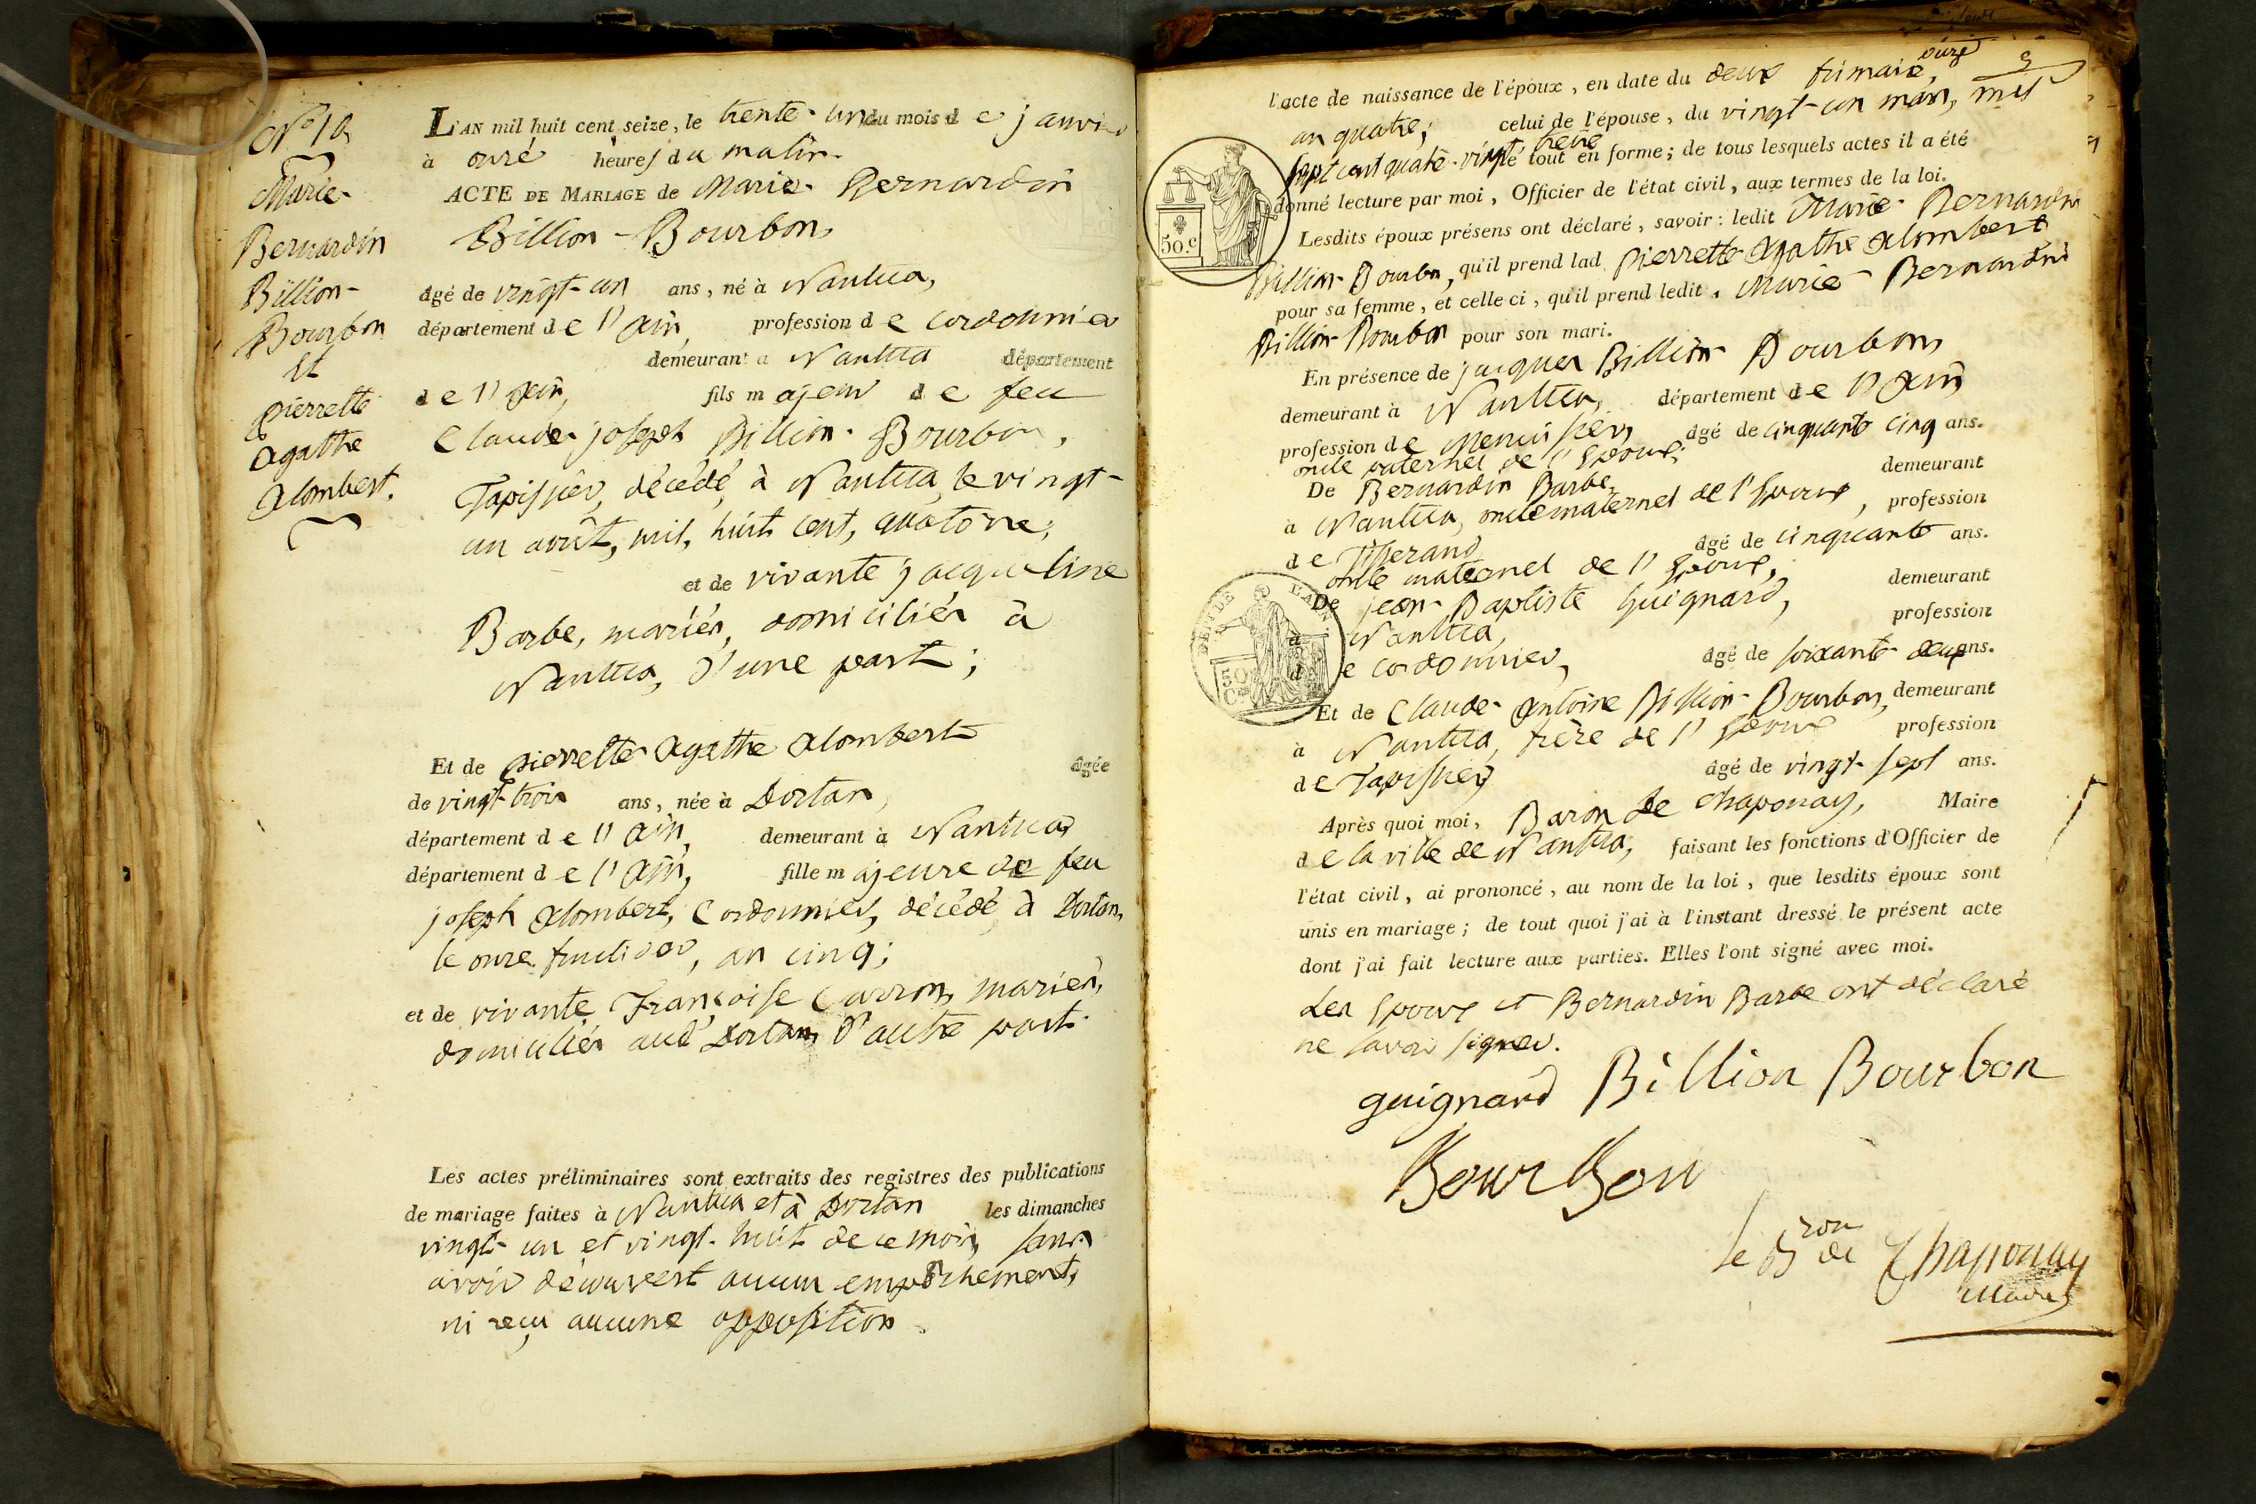 N.º 10
Marie-
Bernardin
Billion-
Bourbon
Et
pierrette
agathe
alombert.
L'AN mil huit cent seize, le trente-un du mois de janvier
à onze heures du matin.
ACTE DE MARIAGE de Marie-Bernardin
Billion-Bourbon,
âgé de vingt-un ans, né à Nantua,
département de l'ain, profession de cordonnier
demeurant à Nantua département
de l'ain, fils majeur de feu
Claude-joseph Billion-Bourbon,
Tapissier, décédé, à Nantua, le vingt-
un août, mil, huit cent, quatorze;
et de vivante jacqueline
Barbe, mariés, domiciliés à
Nantua, d'une part;
Et de pierrette Agathe Alombert âgée
de vingt-trois ans, née à Dortan,
département de l'ain, demeurant à Nantua
département de l'ain, fille majeure de feu
joseph alombert, Cordonnier, décédé, à Dortan,
le onze fructidor, an cinq;
et de vivante Françoise Carron, mariés,
domiciliés aud. Dortan, d'autre part.
Les actes préliminaires sont extraits des registres des publications
de mariage faites à Nantua et à Dortan les dimanches
vingt-un et vingt-huit de ce mois, sans
avoir découvert aucun empêchement,
ni reçu aucune opposition.
l'acte de naissance de l'époux, en date du deux frimaire,
an quatre; celui de l'épouse, du vingt-un mars, mil
sept cent quatre-vingt treize tout en forme; de tous lesquels actes il a été
donné lecture par moi, Officier de l'état civil, aux termes de la loi.
Lesdits époux présens ont déclaré, savoir: ledit Marie-Bernardin
Billion-Bourbon, qu'il prend lad. pierrette Agathe Alombert
pour sa femme, et celle ci, qu'il prend ledit. Marie-Bernardin
Billion-Bourbon pour son mari.
En présence de jacques Billion-Bourbon,
demeurant à Nantua, département de l'ain
profession de Menuisier, âgé de cinquante cinq ans.
oncle paternel de l'Epoux;
De Bernardin Barbe, demeurant
à Nantua, oncle maternel de l'Epoux, profession
de Tisserand âgé de cinquante ans.
oncle maternel de l'Epoux,
De jean-Baptiste Guignard, demeurant
à Nantua, profession
de cordonnier, âgé de soixante-deux ans.
Et de Claude-Antoine Billion-Bourbon, demeurant
à Nantua, frère de l'Epoux profession
de Tapissier, âgé de vingt-sept ans.
Après quoi moi, Baron de Chaponay, Maire
de la ville de Nantua, faisant les fonctions d'Officier de
l'état civil, ai prononcé, au nom de la loi, que lesdits époux sont
unis en mariage; de tout quoi j'ai à l'instant dressé le présent acte
dont j'ai fait lecture aux parties. Elles l'ont signé avec moi.
Les Epoux et Bernardin Barbe ont déclaré
ne savoir signer.
guignard Billion Bourbon
Bourbon
le Bron de Chaponay
Maire
50.c
DEPT DE L'AIN.
50
Cmes